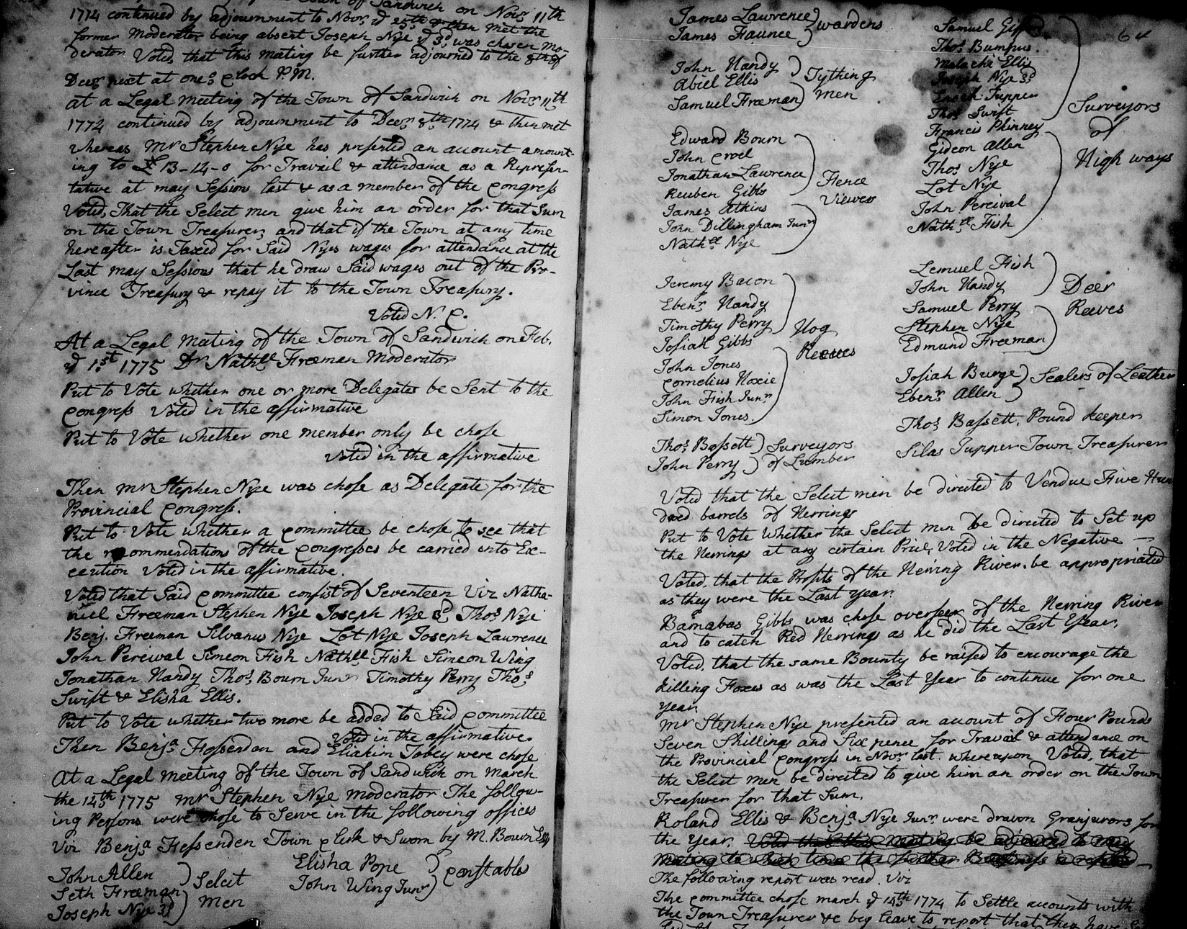 1774 continued by adjournment to Novr. ye 25th & then met the
former Moderator being absent Joseph Nye ye 3d, was chosen Mo-
derator Voted, that this mating be further adjourned to the 8th of
Decr. next at one, Clock P.M.
At a Legal meeting of the Town of Sandwich on Novr. 11th
1774 continued by adjournment to Decr. 8th 1774 & then met
whereas Mr Stephen Nye has presented an account amount-
ing to £13-14-0 for Travail & attendance as a Represen-
tative at may Session last & as a member of the Congress
Voted, That the Select men give him an order for that Sum
on the Town Treasurer, and that if the Town at any time
hereafter is Taxed for Said Nyes wages for attendance at the
Last may Sessions that he draw Said wages out of the Pro-
vince Treasury & repay it to the Town Treasury.
Voted N. C.
At a Legal Mating of the Town of Sandwich on Feb.
ye 1st 1775 Dr Nathll Freeman Moderator
Put to Vote whether one or more Delegates be Sent to the
Congress Voted in the affirmative
Put to Vote whether one member only be chose
Voted in the affirmative
Then Mr Stephen Nye was chose as Delegate for the
Provincial Congress.
Put to Vote whether a committee be chose to see that
the recommendations of the Congresses be carried into Exe-
cution Voted in the affirmative.
Voted that Said committee consist of Seventeen Viz Natha-
niel Freeman Stephen Nye Joseph Nye 3d, Thos Nye
Benj. Freeman Silvanus Nye Lot Nye Joseph Lawrence
John Percival Simeon Fish Nathll Fish Simeon Wing
Jonathan Handy Thos. Bourn Junr Timothy Perry Thos
Swift & Elisha Ellis.
Put to Vote whether two more be added to Said committee
Voted in the affirmative.
Then Benja. Fessendon and Eliakim Tobey were chose
At a Legal Meeting of the Town of Sandwich on March
the 14th 1775 Mr Stephen Nye Moderator The follow-
ing Persons were chose to Serve in the following offices
Viz Benja Fessenden Town Clerk & Sworn by M. Bourn Esq
John Allen
Seth Freeman
Joseph Nye 3d
Select
Men
Elisha Pope
John Wing Junr
Constables
James Lawrence
James Faunce
wardens
John Handy
Abiel Ellis
Samuel Freeman
Tything
men
Edward Bourn
John
Jonathan Lawrence
Reuben Gibbs
James Atkins
John Dillingham Junr
Nathll Nye
Fence
Viewers
Jeremy Bacon
Ebenr Handy
Timothy Perry
Josiah Gibbs
John Jones
Cornelius Hoxie
John Fish Junr
Simon Jones
Hog
Reeves
Thos Bassett
John Perry
Surveyors
of Lumber
64
Samuel
Thos Bumpus
Malachi Ellis
Joseph Nye 3d
Tupper
Thos Swift
Francis Phinney
Gideon Allen
Thos. Nye
Lot Nye
John Percival
Nathll Fish
Surveyors
of
High ways
Lemuel Fish
John Handy
Samuel Perry
Stephen Nye
Edmund Freeman
Deer
Reeves
Josiah Burge
Ebenr Allen
Sealers of Leather
Thos Bassett, Pound keeper
Silas Tupper Town Treasurer
Voted that the Select men be directed to Vendue Five Hun
dred barrels of Herrings
Put to Vote Whether the Select men be directed to Set up
the Herrings at any certain Price, Voted in the Negative
Voted, that the Profits of the Herring River, be appropriated
as they were the Last year.
Barnabas Gibbs was chose overseer of the Herring River
and to catch Red Herrings as he did the Last Year.
Voted, that the same Bounty be raised to encourage the
Killing Foxes as was the Last Year to continue for one
year.
Mr Stephen Nye presented an account of Four Pounds
Seven Shillings and Six pence for Travail & attendance on
the Provincial Congress in Novr. last, whereupon Voted, that
the Select men be directed to give him an order on the Town
Treasurer for that Sum,
Roland Ellis & Benja Nye Junr were drawn Granjurors for
the Year. Voted that this meeting be adjourned to may
meeting to which time the further Business is
The following report was read. Viz
The Committee chose march ye 14th 1774 to Settle accounts with
the Town Treasurer &c beg leave to report that they have